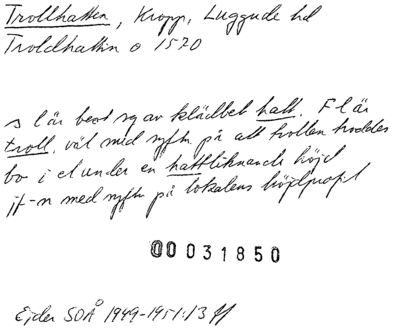 Trollhatten, Kropp, Luggude hd
Troldhattin o 1570
s l är best sg av klädbet hatt. F l är
troll, väl med syftn på att trollen troddes
bo i el under en hattliknande höjd
jf-n med syftn på lokalens höjdprofil
00031850
Ejder SOÅ 1949-1951:13 ff